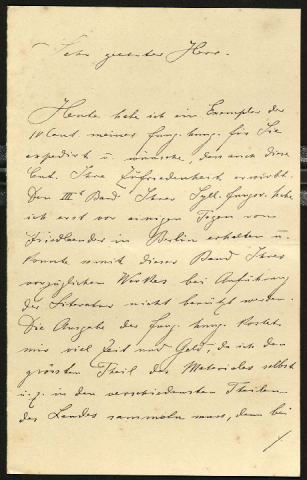 Sehr geehrter Herr.
Heute habe ich ein Exemplar der
10 Cent. meiner fung. hung. für Sie
expedirt u. wünsche, dass auch diese
Cent. Ihre Zufriedenheit erwirbt.
Den IIIt Band Ihres Syll. fungor. habe
ich erst vor einigen Tagen vom
Friedländer in Berlin erhalten u.
konnte somit dieser Band Ihres
vorzüglichen Werkes bei Anführung
der Literatur nicht benützt werden.
Die Ausgabe der fung. hung. kostet
mir viel Zeit und Geld, da ich den
grössten Theil des Materiales selbst
u. z. in den verschiedensten Theilen
des Landes sammeln muss, denn bei